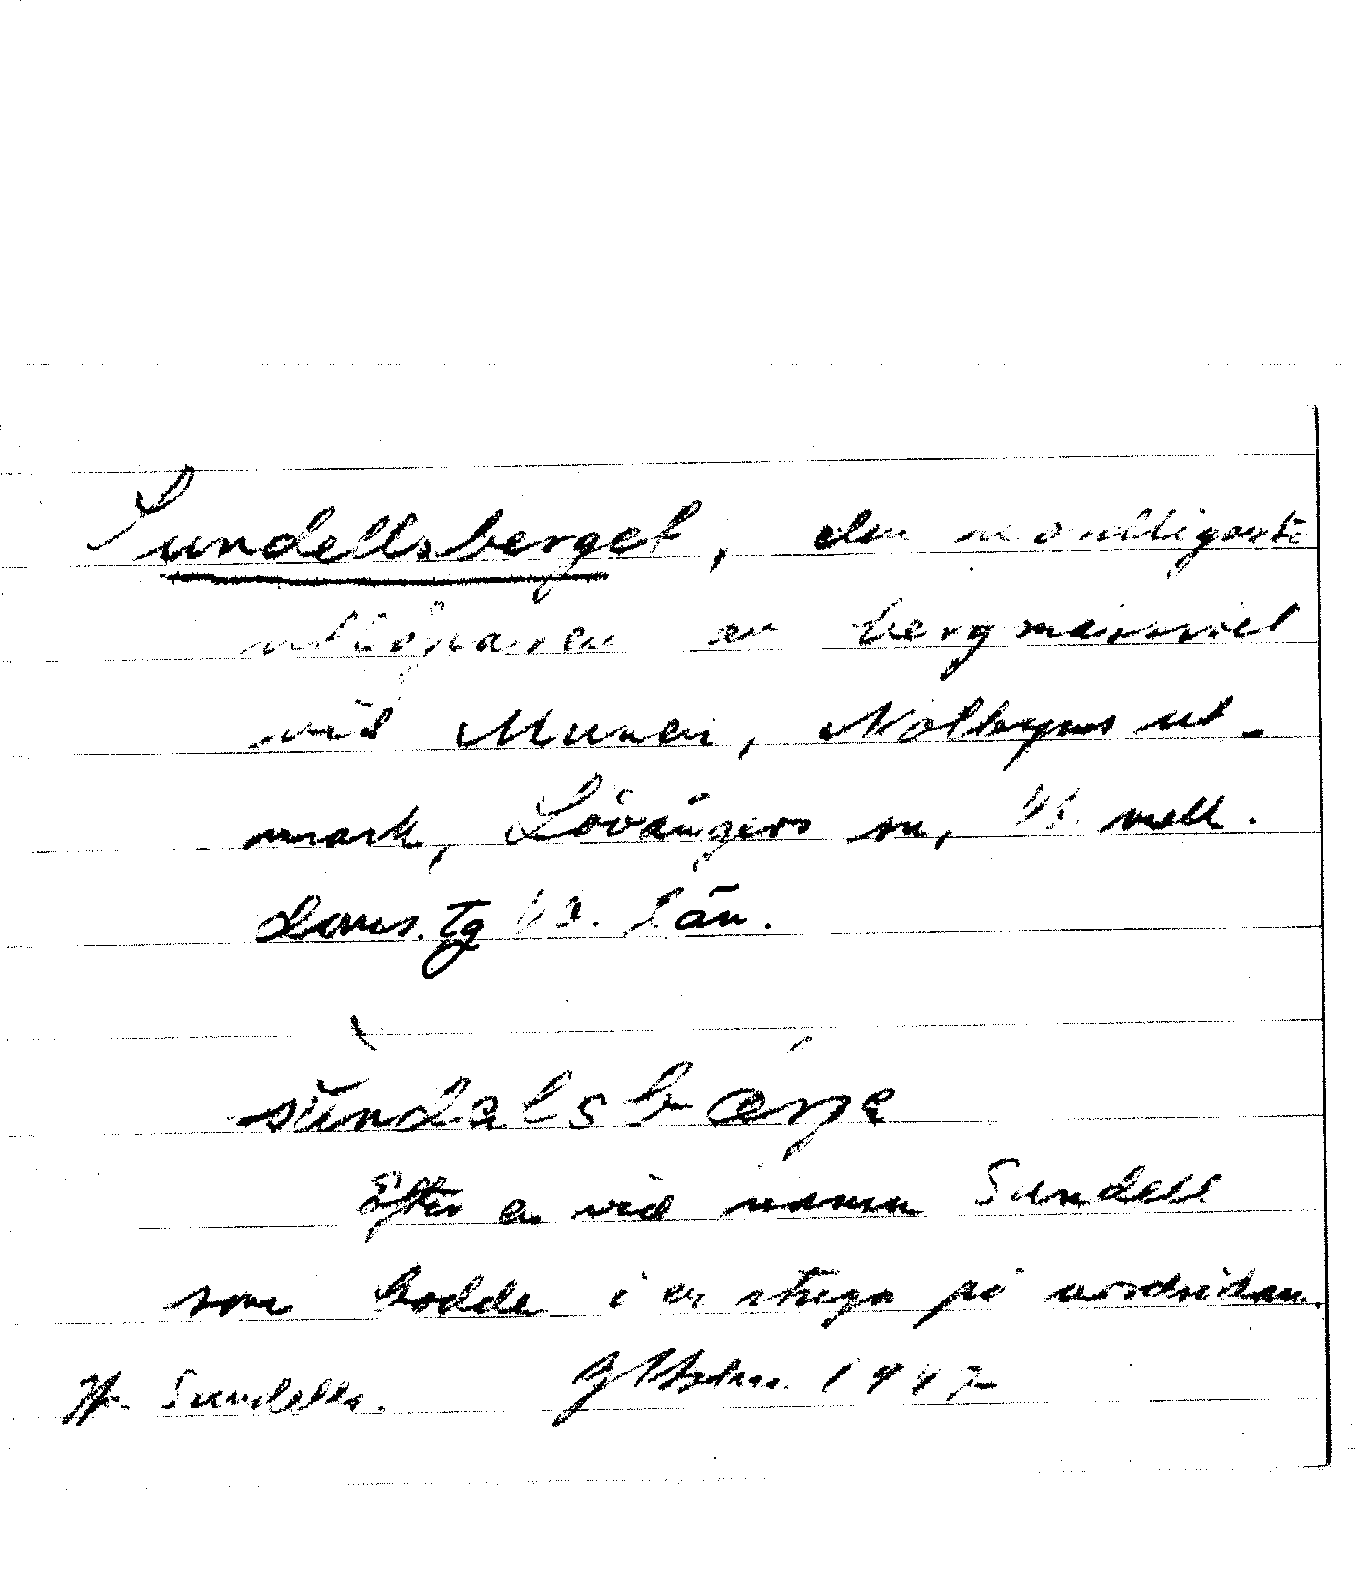 Sundellsberget, den nordligaste
utlöparen av bergmassivet
vid Muren, Nolbyns ut-
mark, Lövångers sn, mell.
Lövs. tg län.
sùndelsbærje
Efter en vid namn Sundell
som bodde i en stuga på nordsidan.
Jfr Sundells. Holm. 1947